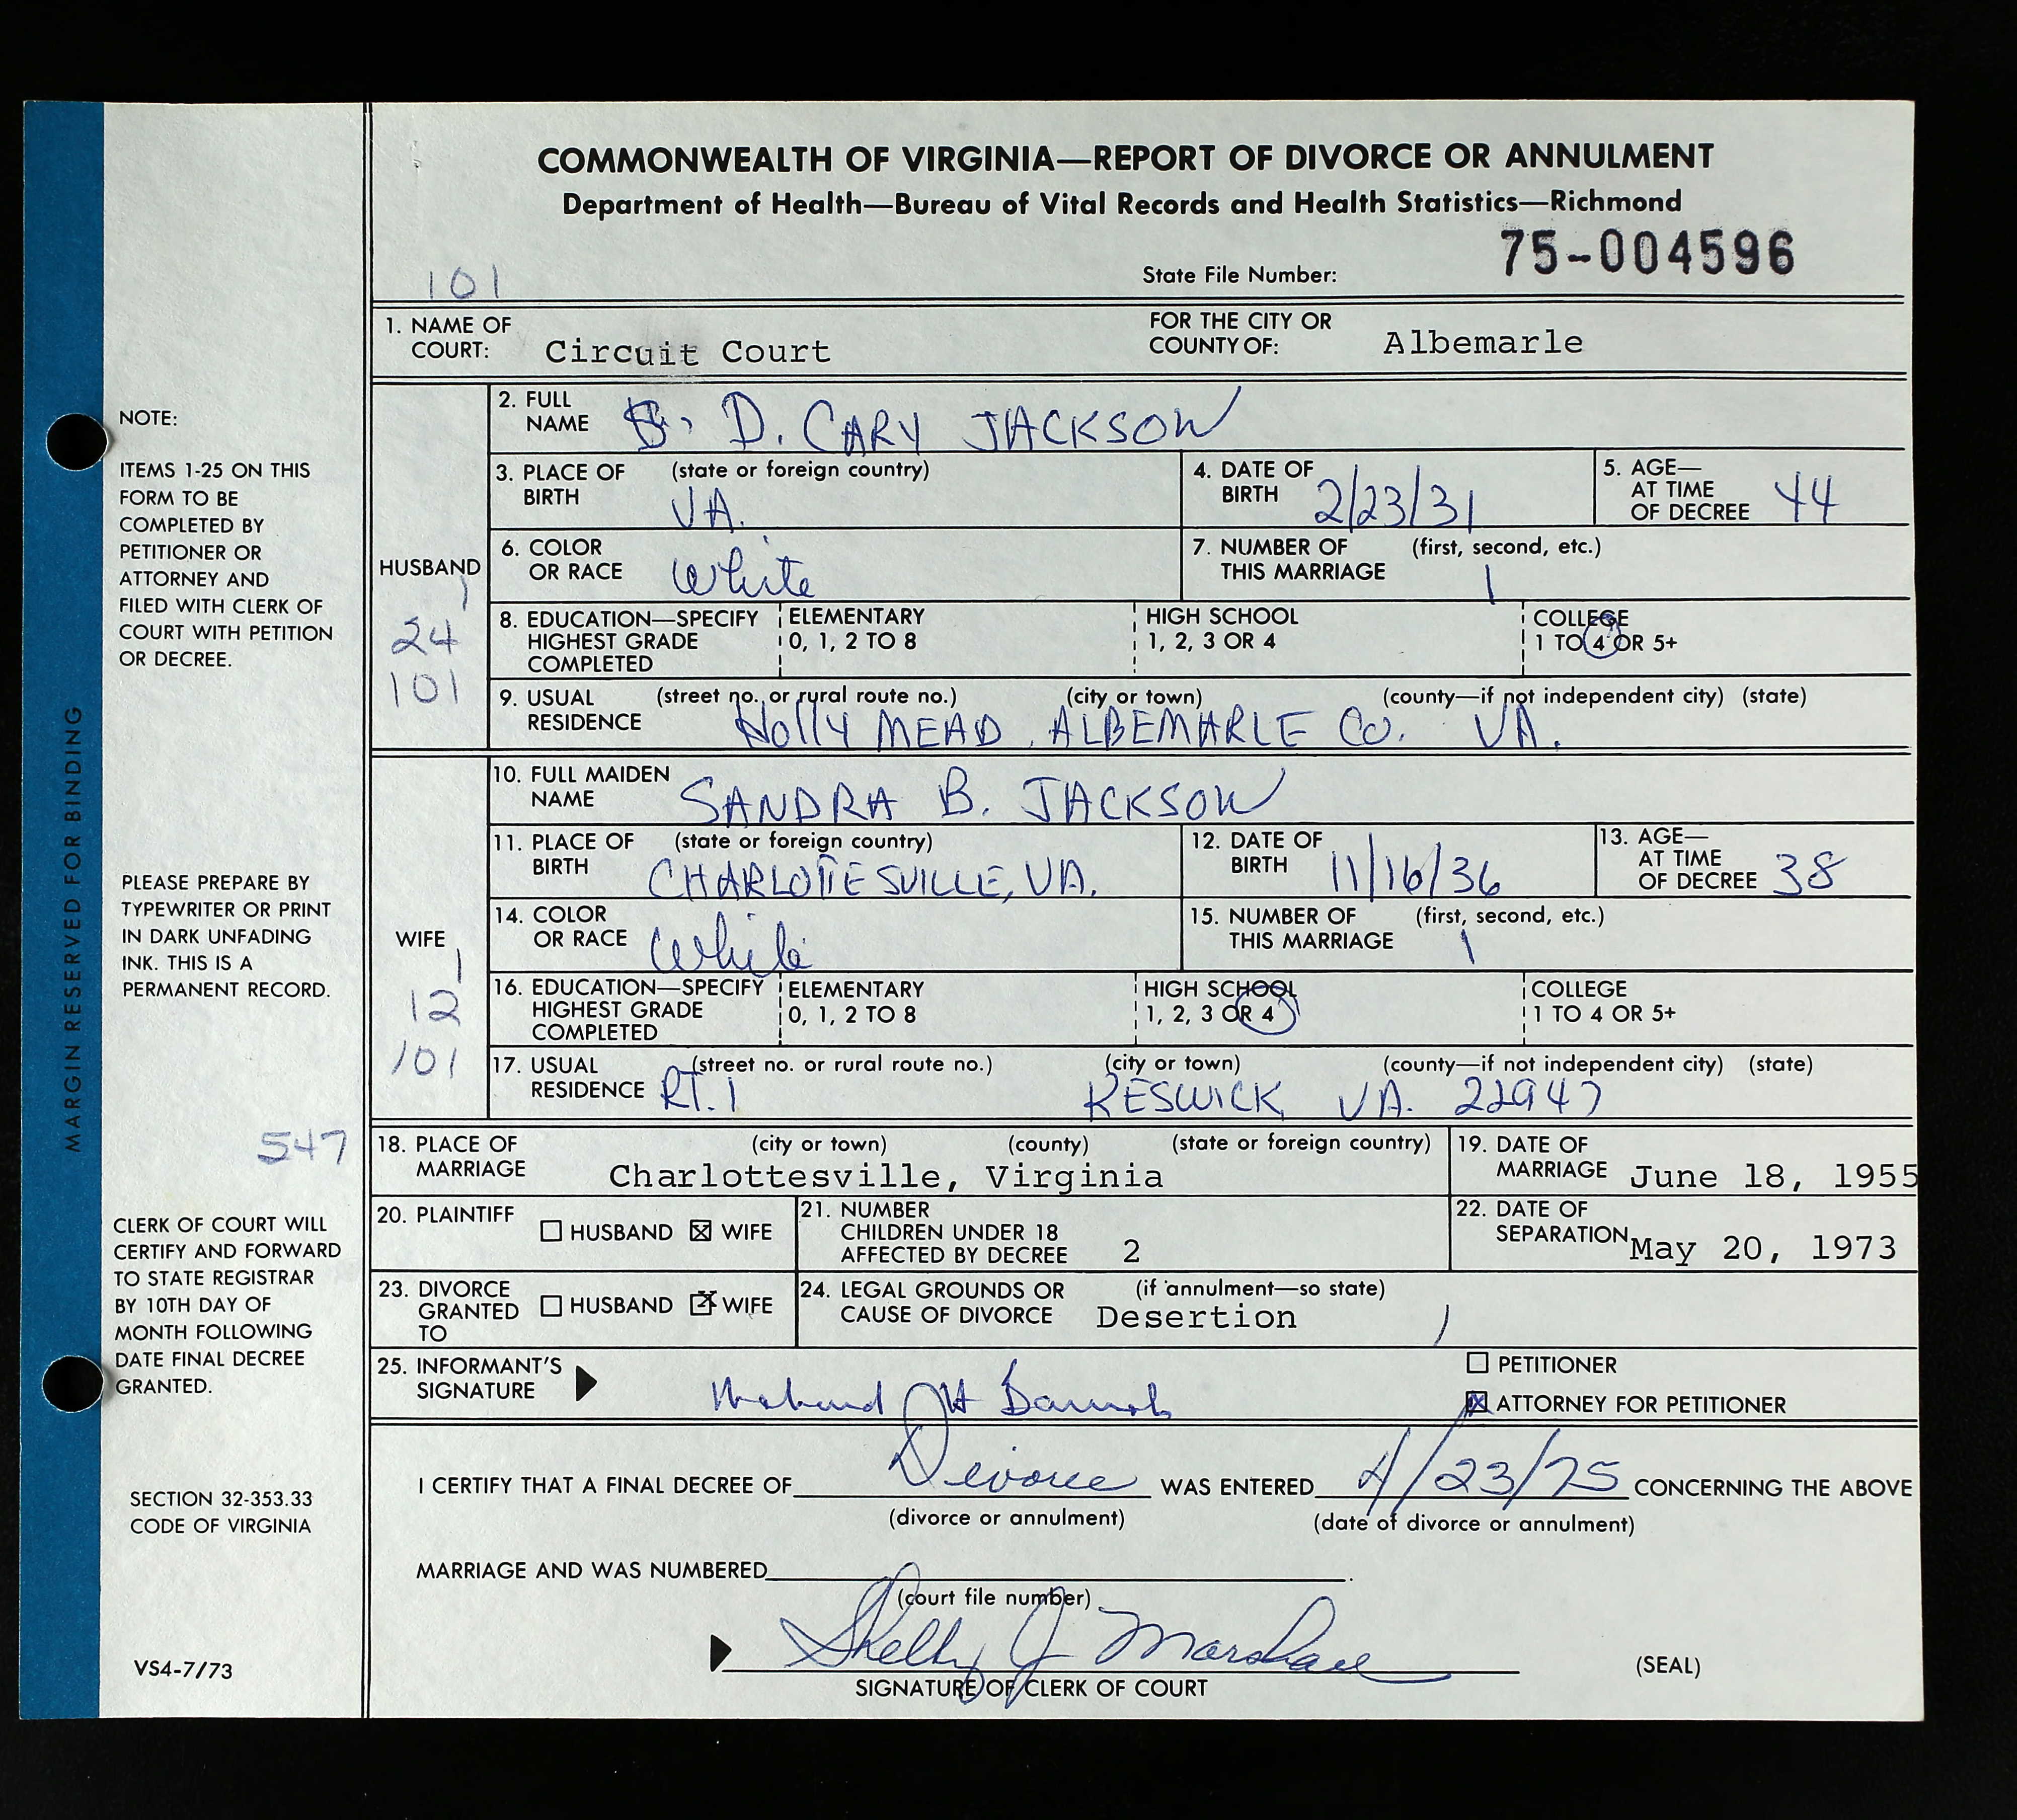 COMMONWEALTH OF VIRGINIA—REPORT OF DIVORCE OR ANNULMENT
Department of Health—Bureau of Vital Records and Health Statistics—Richmond
101 State File Number: 75-004596
1. NAME OF COURT: Circuit Court FOR THE CITY OR COUNTY OF: Albemarle
HUSBAND
1
24
101
2. FULL NAME D. CARY JACKSON
3. PLACE OF BIRTH (state or foreign country) VA. 4. DATE OF BIRTH 2/23/31 5. AGE—AT TIME OF DECREE 44
6. COLOR OR RACE White 7. NUMBER OF THIS MARRIAGE (first, second, etc.) 1
8. EDUCATION—SPECIFY HIGHEST GRADE COMPLETED ELEMENTARY 0, 1, 2 TO 8 HIGH SCHOOL 1, 2, 3 OR 4 COLLEGE 1 TO 4 OR 5+
9. USUAL RESIDENCE (street no. or rural route no.) (city or town) (county—if not independent city) (state)
Holly MEAD, ALBEMARLE CO. VA.
WIFE
1
12
101
10. FULL MAIDEN NAME SANDRA B. JACKSON
11. PLACE OF BIRTH (state or foreign country) CHARLOTTESVILLE, VA. 12. DATE OF BIRTH 11/16/36 13. AGE—AT TIME OF DECREE 38
14. COLOR OR RACE White 15. NUMBER OF THIS MARRIAGE (first, second, etc.) 1
16. EDUCATION—SPECIFY HIGHEST GRADE COMPLETED ELEMENTARY 0, 1, 2 TO 8 HIGH SCHOOL 1, 2, 3 OR 4 COLLEGE 1 TO 4 OR 5+
17. USUAL RESIDENCE (street no. or rural route no.) (city or town) (county—if not independent city) (state)
RT. 1 KESWICK VA. 22947
547
18. PLACE OF MARRIAGE (city or town) (county) (state or foreign country) Charlottesville, Virginia 19. DATE OF MARRIAGE June 18, 1955
20. PLAINTIFF ☐ HUSBAND ☒ WIFE 21. NUMBER CHILDREN UNDER 18 AFFECTED BY DECREE 2 22. DATE OF SEPARATION May 20, 1973
23. DIVORCE GRANTED TO ☐ HUSBAND ☒ WIFE 24. LEGAL GROUNDS OR CAUSE OF DIVORCE (if annulment—so state) Desertion 1
25. INFORMANT'S SIGNATURE ☐ PETITIONER
☒ ATTORNEY FOR PETITIONER
I CERTIFY THAT A FINAL DECREE OF Divorce WAS ENTERED 4/23/75 CONCERNING THE ABOVE
(divorce or annulment) (date of divorce or annulment)
MARRIAGE AND WAS NUMBERED
(court file number)
Shelby J Marshall
SIGNATURE OF CLERK OF COURT (SEAL)
MARGIN RESERVED FOR BINDING
NOTE:
ITEMS 1-25 ON THIS
FORM TO BE
COMPLETED BY
PETITIONER OR
ATTORNEY AND
FILED WITH CLERK OF
COURT WITH PETITION
OR DECREE.
PLEASE PREPARE BY
TYPEWRITER OR PRINT
IN DARK UNFADING
INK. THIS IS A
PERMANENT RECORD.
CLERK OF COURT WILL
CERTIFY AND FORWARD
TO STATE REGISTRAR
BY 10TH DAY OF
MONTH FOLLOWING
DATE FINAL DECREE
GRANTED.
SECTION 32-353.33
CODE OF VIRGINIA
VS4-7/73